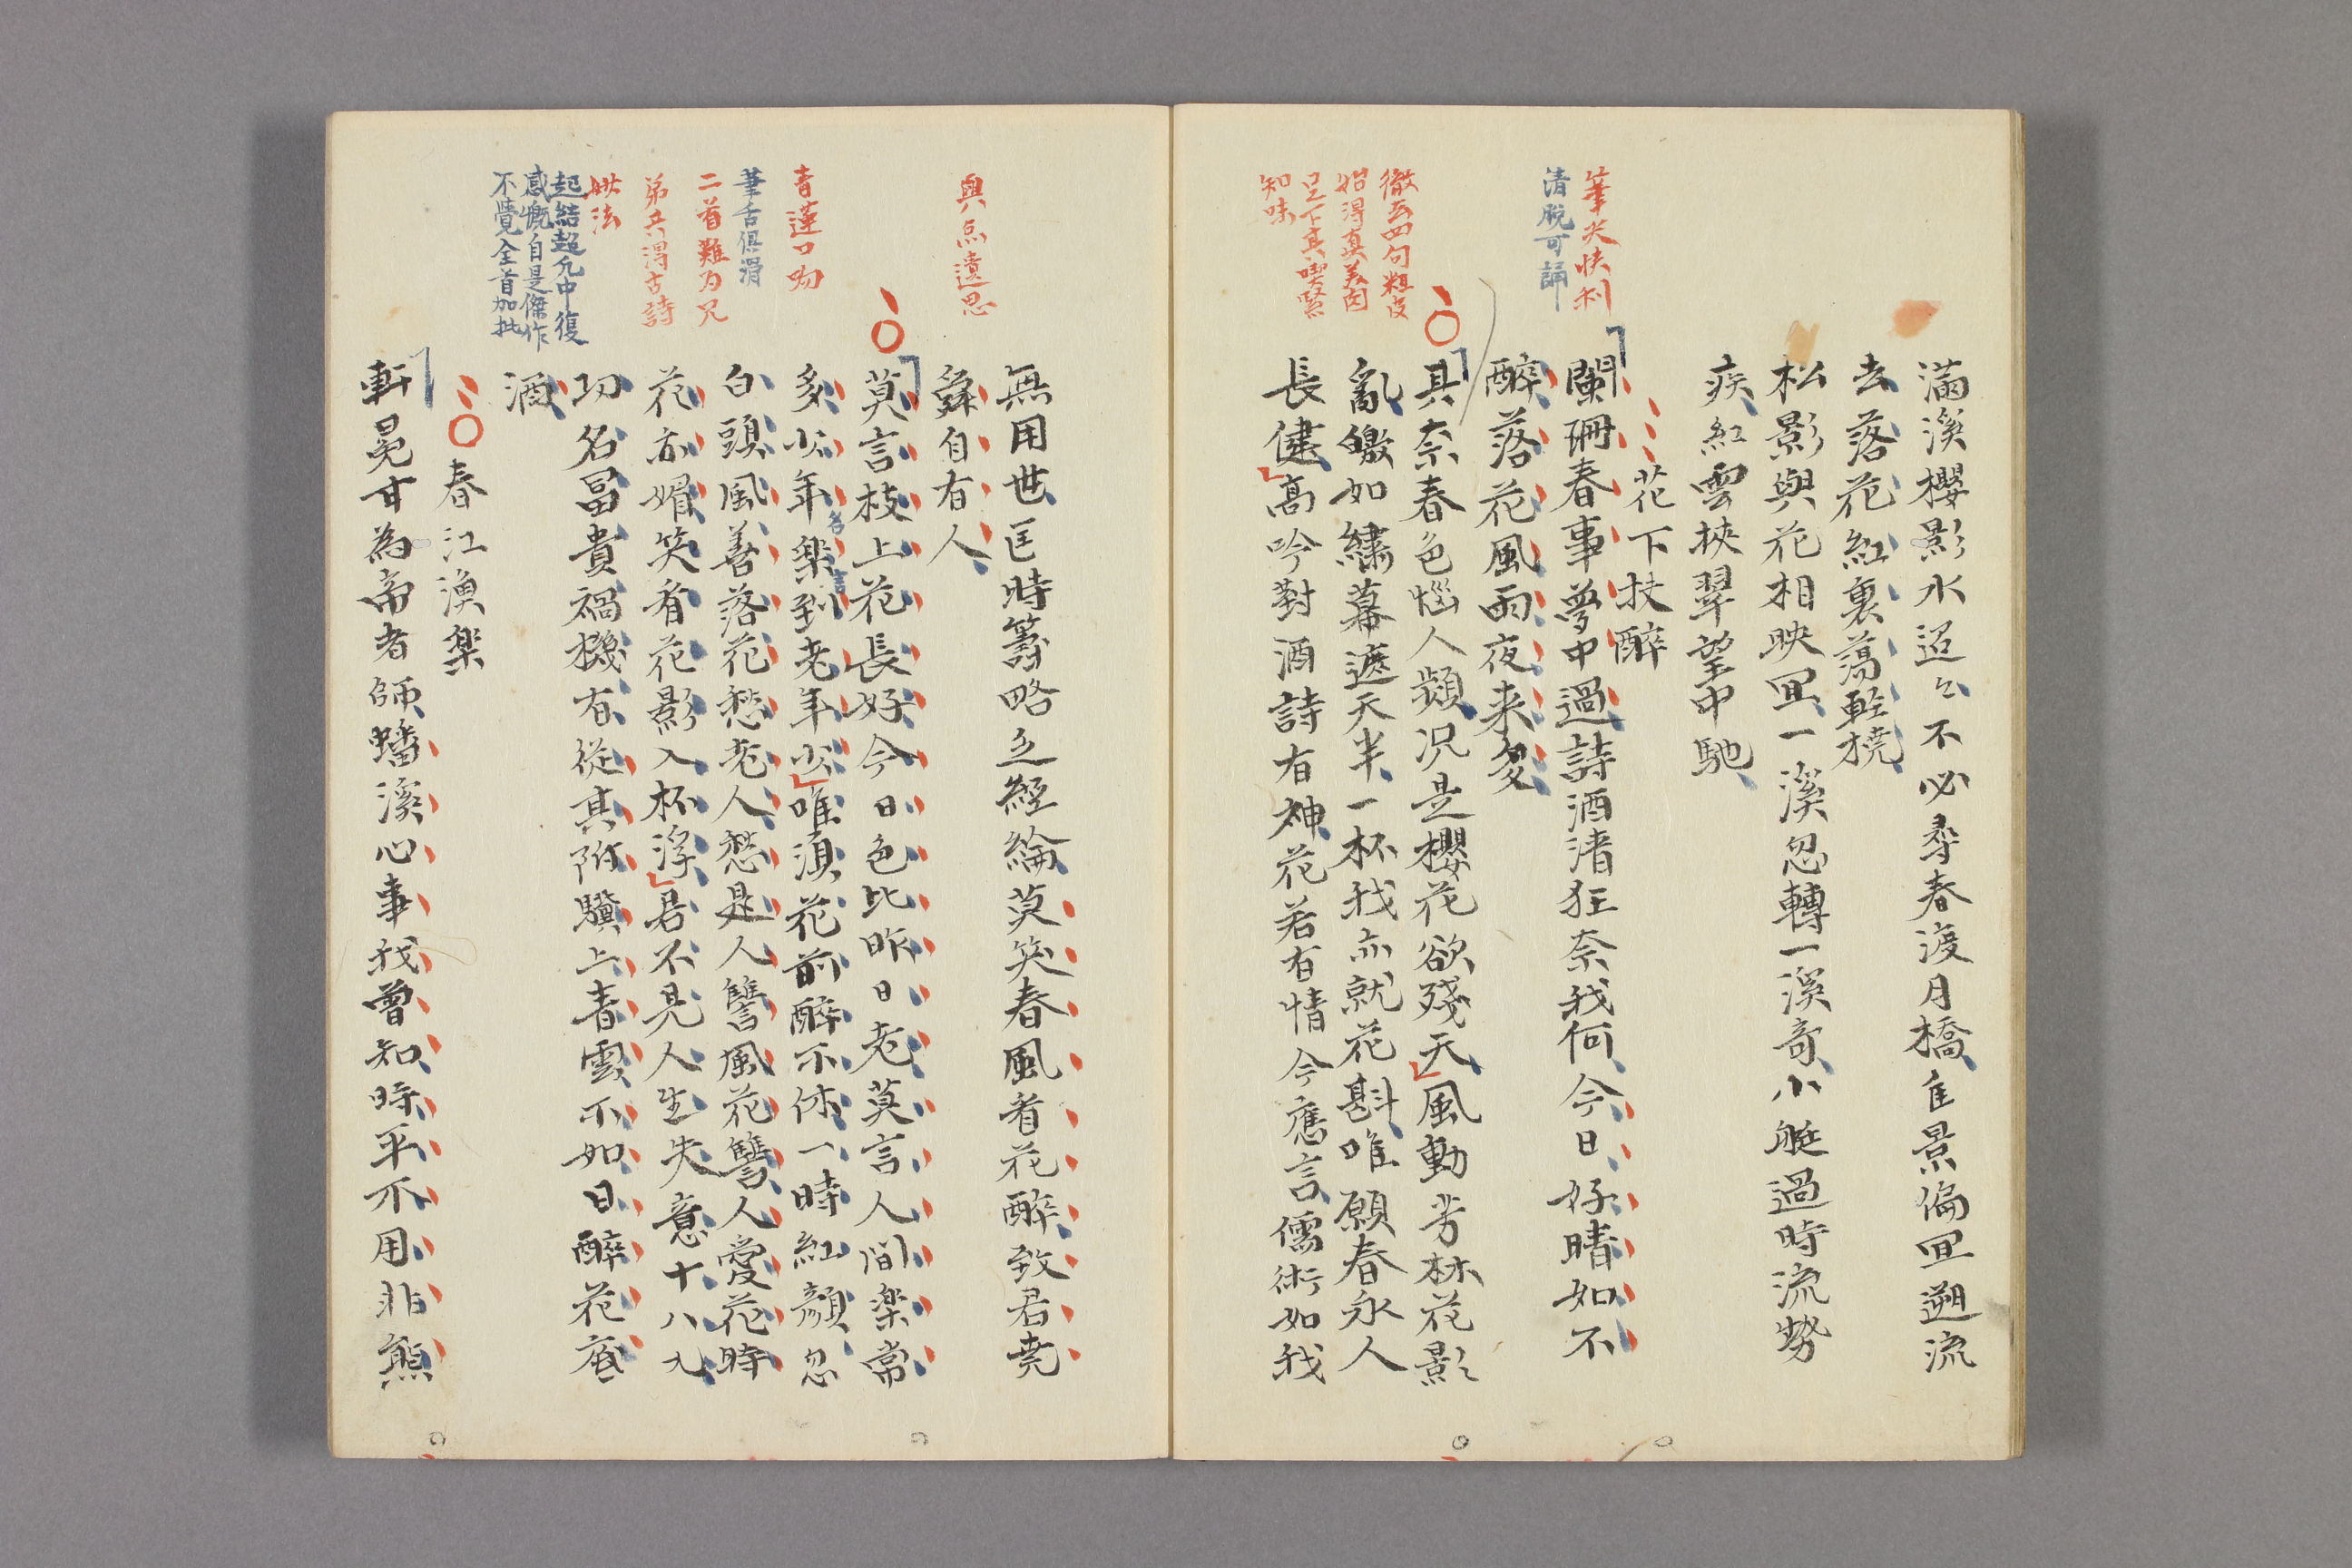 滿溪櫻影水迢〻不必尋春渡月橋佳景偏宜遡流
去落花紅裏蕩輕橈
松影與花相映宜一溪忽轉一溪奇小艇過時流勢
疾紅雲挾翠望中馳
花下扶醉
闌珊春事夢中過詩酒清狂奈我何今日好晴如不
醉落花風雨夜来多
其奈春色惱人頻况是櫻花欲殘天風動芳林花影
亂皦如繡幕遮天半一杯我亦就花斟唯願春永人
長健高吟對酒詩有神花若有情今應言儒術如我
筆尖快利
清脫可誦
徹去四句粗皮
始得真美肉
足下真喫緊
知味
無用世匡時籌略立經綸莫笑春風看花醉致君堯
舜自有人
莫言枝上花長好今日色比昨日老莫言人間楽常
多少年楽到老年少唯須花前醉不休一時紅顏忽
白頭風善落花愁老人愁是人讐風花讐人愛花時
花亦媚笑看花影入杯浮君不見人生失意十八九
功名冨貴禍機有從其附驥上青雲不如日醉花底
酒
春江漁楽
軒冕甘為帝者師蟠溪心事我曾知時平不用非熊
與点遺思
青蓮口吻
筆舌俱滑
二首難为兄
弟共得古詩
妣法
起結超允中復
感慨自是傑作
不覺全首加批